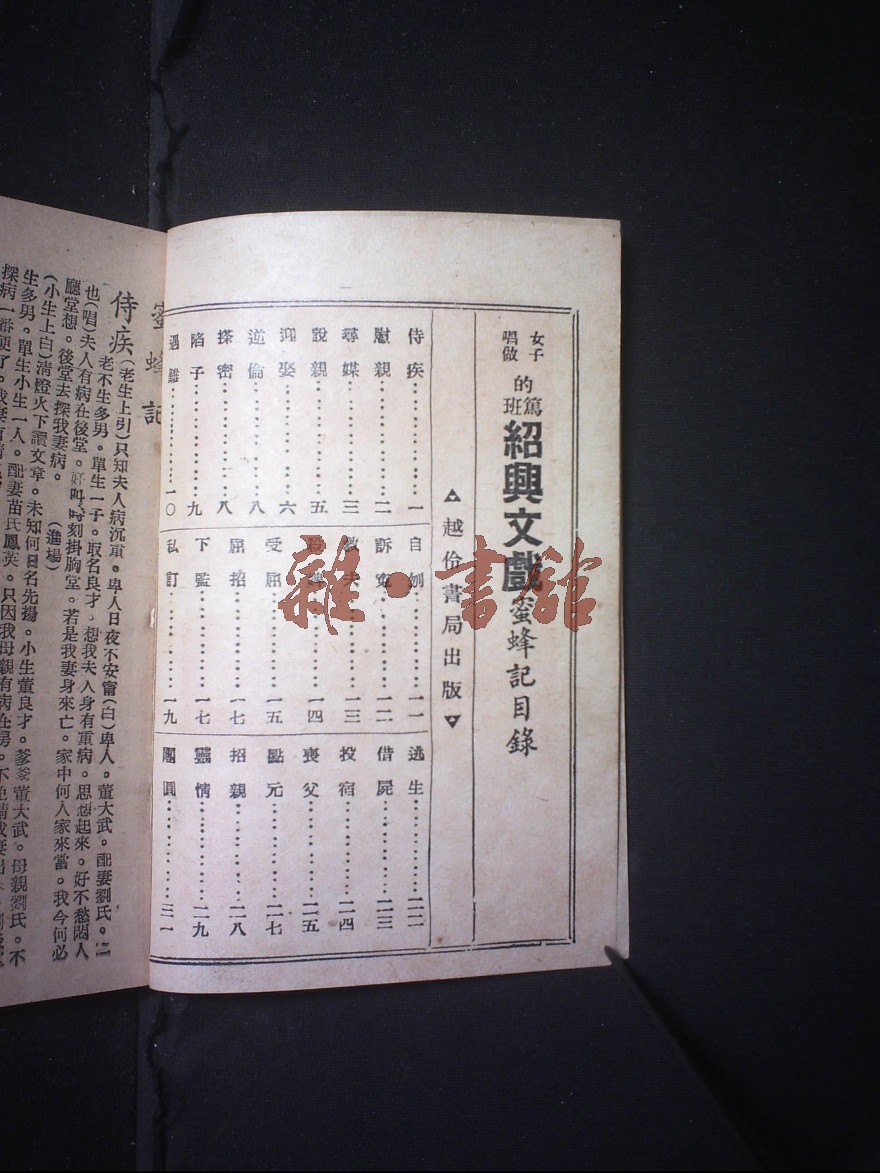 女子
唱做
的篤
班
紹興文戲
蜜蜂記目錄
▲越伶書局出版▼
侍疾……………一
慰親……………二
尋媒……………三
說親……………五
迎娶……………六
逆倫……………八
搽密……………八
陷子……………九
遇難……………一〇
自刎……………一一
訴寃……………一二
救夫……………一三
……………一四
受屈……………一五
屈招……………一七
下監……………一七
私訂……………一九
逃生……………二二
借屍……………二三
投宿……………二四
喪父……………二五
點元……………二七
招親……………二八
靈情……………二九
團圓……………三一
蜜蜂記
侍疾(老生上引)只知夫人病沉重。卑人日夜不安甯(白)卑人。董大武。配妻劉氏。二
老不生多男。單生一子。取名良才。想我夫人身有重病。思想起來。好不愁悶人
也(唱)夫人有病在後堂。好叫時刻掛胸堂。若是我妻身來亡。家中何人家來當。我今何必
廳堂想。後堂去探我妻病。 (進場)
(小生上白)清燈火下讀文章。未知何日名先揚。小生董良才。爹爹董大武。母親劉氏。不
生多男。單生小生一人。配妻苗氏鳳英。只因我母親有病在房。不
探病一番便了。我妻
雜·書館